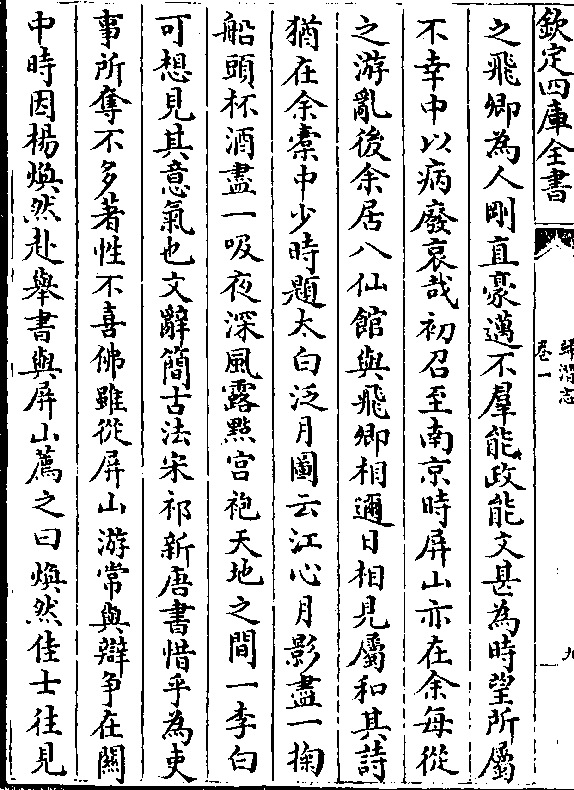 欽定四庫全書
歸潛志
卷一
九
之飛卿為人剛直豪邁不羣能政能文甚為時望所屬
不幸中以病廢哀哉初召至南京時屏山亦在余每從
之游亂後余居八仙館與飛卿相邇日相見屬和其詩
猶在余橐中少時題太白泛月圖云江心月影盡一掬
船頭杯酒盡一吸夜深風露㸃宫袍天地之間一李白
可想見其意氣也文辭簡古法宋祁新唐書惜乎為吏
事所奪不多著性不喜佛雖從屏山游常與辯爭在關
中時因楊煥然赴舉書與屏山薦之曰煥然佳士往見